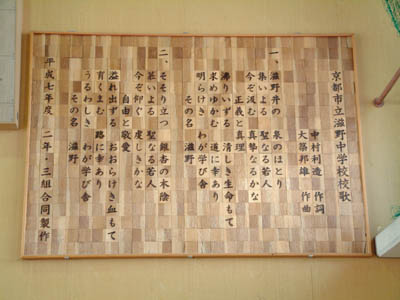 京都市立滋野中学校校歌
中村利造 作詞
大築邦雄 作曲
一、滋野井の 泉のほとり
集いよる 聖なる若人
今ぞ汲む 真摯なるかな
正義と真理
沸りいずる 清しき生命もて
求めゆかむ 道に幸あり
明らけき わが学び舎
その名 滋野
二、そそり立つ 銀杏の木陰
慕いよる 聖なる若人
今ぞ仰ぐ 虔しきかな
自由と敬愛
溢れ出ずる おおらけき血もて
育くまむ 路に幸あり
うるわしき わが学び舎
その名 滋野
平成七年度 二年・三組合同製作